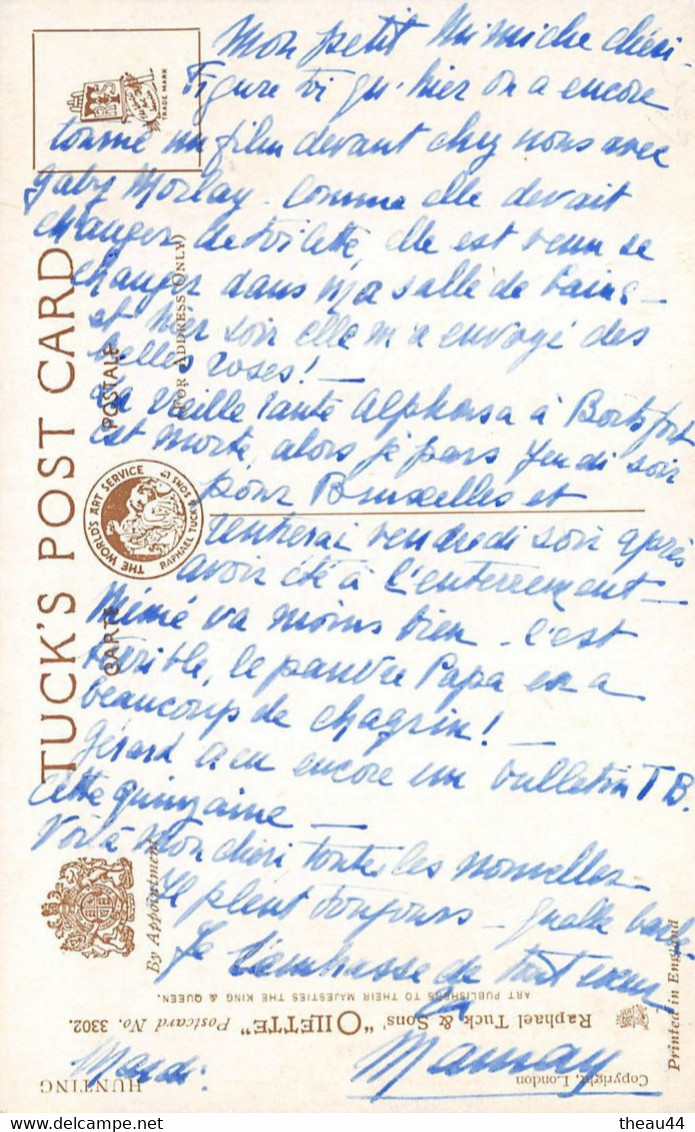 Mon petit Mimiche chéri -
Figure toi qu'hier on a encore
tourné un film devant chez nous avec
Gaby Morlay - Comme elle devait
changer de toilette, elle est venu se
changer dans ma salle de bains -
et hier soir elle m'a envoyé des
belles roses! -
La vieille tante Alphonsa à Boitsfort
est morte, alors je pars jeudi soir
pour Bruxelles et
rentrerai vendredi soir après
avoir été à l'enterrement -
Mémé va moins bien - c'est
terrible, le pauvre Papa en a
beaucoup de chagrin! -
Gérard a eu encore un bulletin T B.
cette quinzaine -
Voilà mon chéri toutes les nouvelles -
Il pleut toujours - quelle
Je t'embrasse de tout coeur
Ta
Mamay
Mardi.
TUCK'S POST CARD
CARTE POSTALE
(FOR ADDRESS ONLY)
TRADE MARK
THE WORLD'S ART SERVICE
RAPHAEL TUCK & SONS LD
By Appointment
Raphael Tuck & Sons' "OILETTE" Postcard No. 3302.
ART PUBLISHERS TO THEIR MAJESTIES THE KING & QUEEN.
HUNTING
Copyright, London
Printed in England
theau44